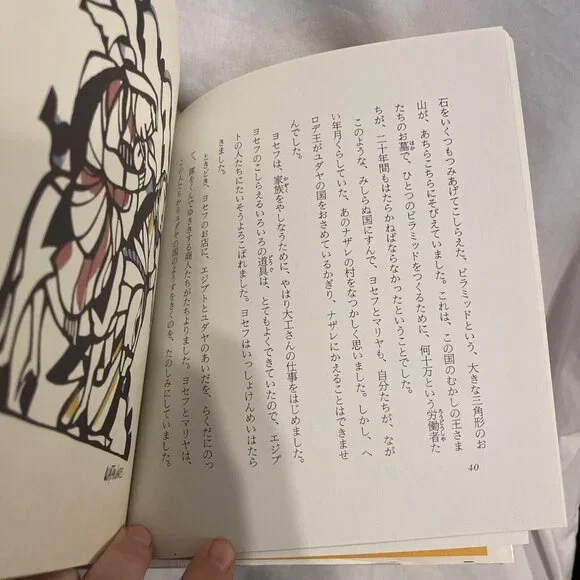 石をいくつもつみあげてこしらえた、ピラミッドという、大きな三角形のお
山が、あちらこちらにそびえていました。これは、この国のむかしの王さま
たちのお墓で、ひとつのピラミッドをつくるために、何十万という労働者た
ちが、二十年間もはたらかねばならなかったということでした。
このような、みしらぬ国にすんで、ヨセフとマリヤも、自分たちが、なが
い年月くらしていた、あのナザレの村をなつかしく思いました。しかし、ヘ
ロデ王がユダヤの国をおさめているかぎり、ナザレにかえることはできませ
んでした。
ヨセフは、家族をやしなうために、やはり大工さんの仕事をはじめました。
ヨセフのこしらえるいろいろの道具は、とてもよくできていたので、エジプ
トの人たちにたいそうよろこばれました。ヨセフはいっしょけんめいはたら
きました。
ときどき、ヨセフのお店に、エジプトとユダヤのあいだを、らくだにのっ
て、隊をくんでゆききする商人たちがたちよりました。ヨセフとマリヤは、
この人たちからユダヤの国のようすをきくのを、たのしみにしていました。
40